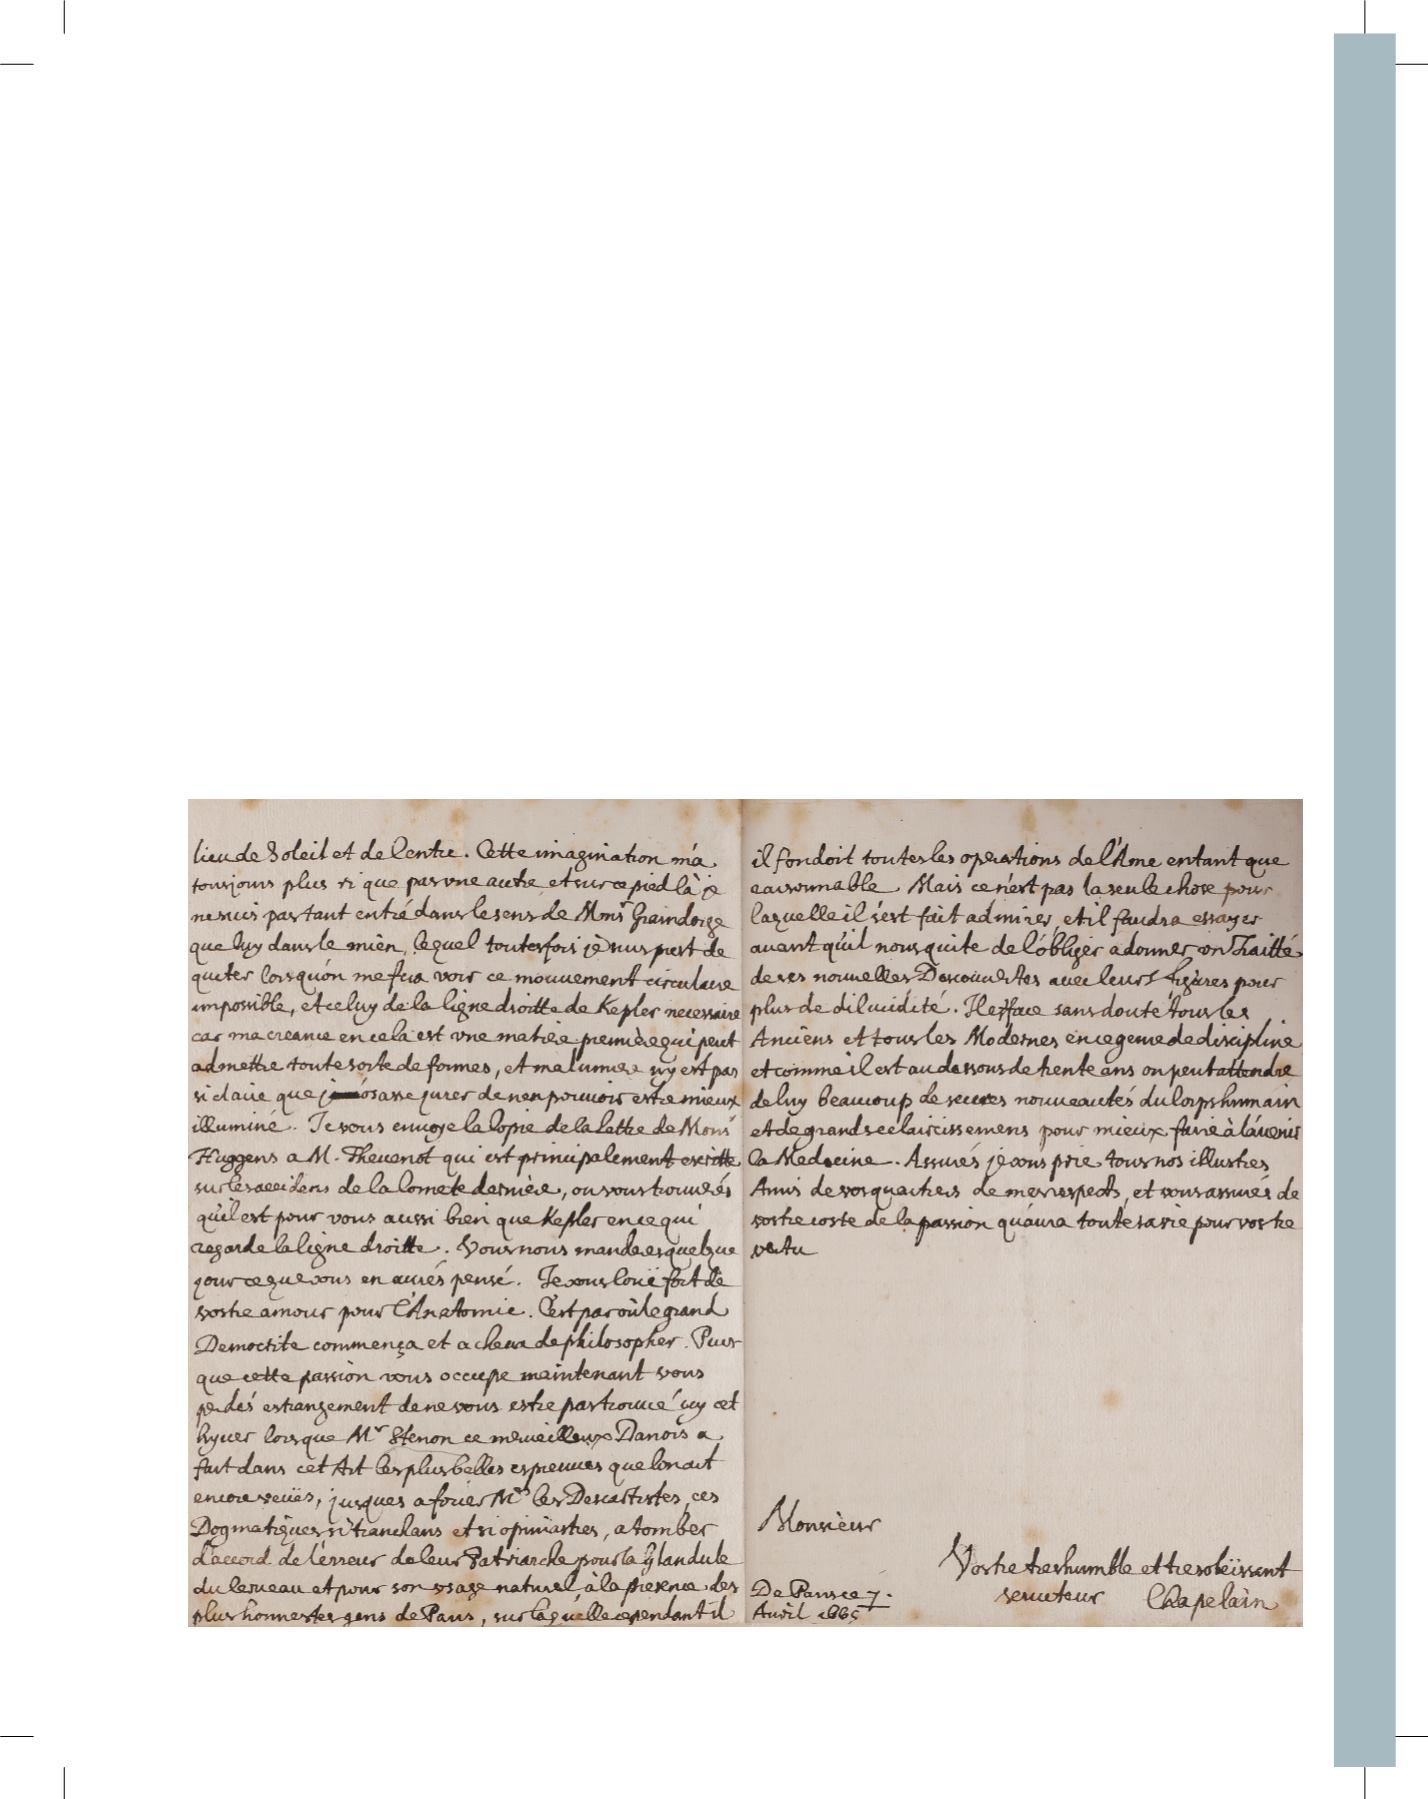 lieu de Soleil et de Centre. Cette imagination m'a
tousjours plus ri que pas vne autre et sur ce pied là je
ne suis pas tant entré dans le sens de Monsr Graindorge
que luy dans le mien, lequel toutesfois je suis prest de
quiter lorsqu'on me fera voir ce mouuement circulaire
impossible, et celuy de la ligne droitte de Kepler necessaire
car ma creance en cela est vne matiere premiere qui peut
admettre toute sorte de formes, et ma lumiere n'y est pas
si claire que j'osasse jurer de n'en pouuoir estre mieux
illuminé. Je vous enuoye la Copie de la lettre de Monsr
Huggens a M. Theuenot qui est principalement escritte
sur les accidens de la Comete derniere, ou vous trouuerés
qu'il est pour vous aussi bien que Kepler en ce qui
regarde la ligne droitte. Vous nous manderes quelque
jour ce que vous en aurés pensé. Je vous louë fort de
vostre amour pour l'Anatomie. C'est par où le grand
Democrite commença et acheua de philosopher. Puis
que cette passion vous occupe maintenant vous
perdés estrangement de ne vous estre pas trouué icy cet
hyuer lorsque Mr Stenon ce merueilleux Danois a
fait dans cet Art les plus belles espreuues que l'on ait
encore veües, jusques a forcer Mrs les Descartistes, ces
Dogmatiques si tranchans et si opiniastres, a tomber
d'accord de l'erreur de leur Patriarche pour la glandule
du Cerueau et pour son vsage naturel à la presence des
plus honnestes gens de Paris, sur laquelle cependant il
il fondoit toutes les operations de l'Ame entant que
raisonnable. Mais ce n'est pas la seule chose pour
laquelle il s'est fait admirer, et il faudra essayer
auant qu'il nous quite de l'obliger a donner vn Traitté
de ses nouuelles Descouuertes auec leurs figures pour
plus de dilucidité. Il efface sans doute tous les
Anciens et tous les Modernes en ce genre de discipline
et comme il est au dessous de trente ans on peut attendre
de luy beaucoup de nouueautés du Corps humain
et de grands eclaircissemens pour mieux faire à l'auenir
la Medecine. Assurés je vous prie tous nos illustres
Amis de vos quartiers de mes respects, et vous assurés de
vostre coste de la passion qu'aura toute sa vie pour vostre
vertu
Monsieur
Vostre tres humble et tres obeïssant
seruiteur Chapelain
De Paris ce 7.
Auril 1665